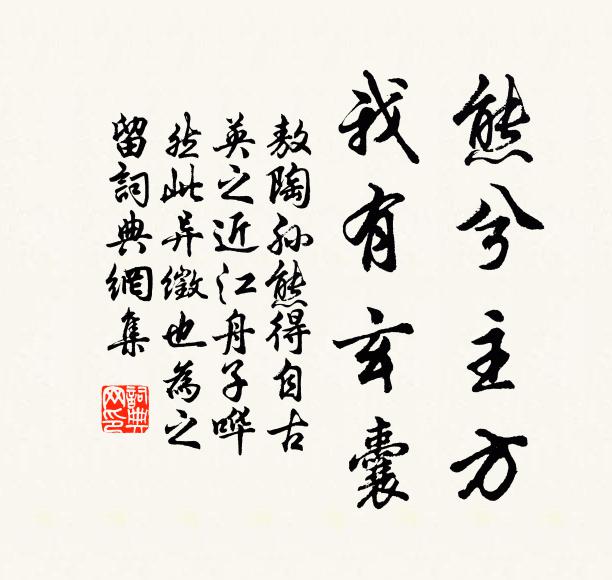 熊兮主方
我有玄囊
敖陶孙熊得自古
英之近江舟子哗
然此异徵也為之
留詞典網集
詞典網印